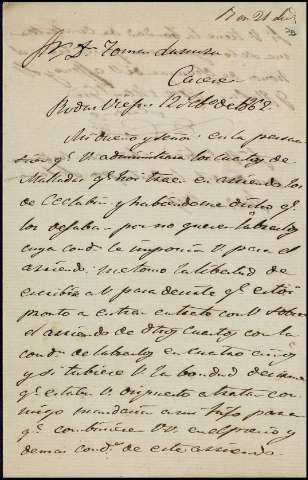 Sr. Dn. Tomas
Caceres
12 Feb.o de 1862
Muy dueño y señor: en la persua
sion q.e V. administra los cuartos de
q.e hoy traen en arriendo los
de Ceclabin y habiendome dicho q.e
los dejaban por no querer labrarlos
cuya cond.n le imponia V. para el
arriendo, me tomo la libertad de
escribir a V. para decirle q.e estoy
pronto a entrar en trato con V. sobre
el arriendo de dhos cuartos con la
cond.n de labrarlos en cuatro años
y si tubiere V. la bondad decirme
q.e estaba V. dispuesto a tratar con
migo mandaria a mi hijo para
q.e combiniese VV. en el precio y
demas cond.s de este arriendo.